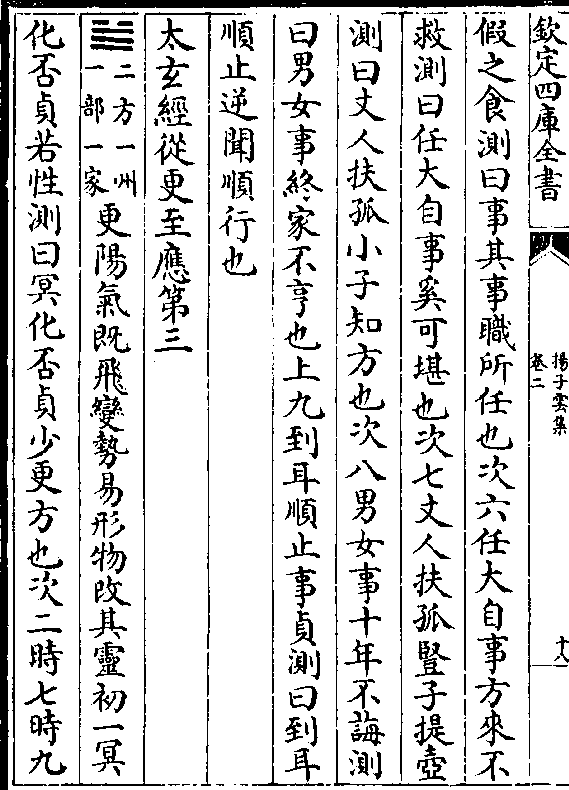 欽定四庫全書
揚子雲集
卷二
十八
假之食測曰事其事職所任也次六任大自事方來不
救測曰任大自事奚可堪也次七丈人扶孤豎子提壺
測曰丈人扶孤小子知方也次八男女事十年不誨測
曰男女事終家不亨也上九到耳順止事貞測曰到耳
順止逆聞順行也
太玄經從更至應第三
二方一州
一部一家
更陽氣既飛變勢易形物改其靈初一冥
化否貞若性測曰冥化否貞少更方也次二時七時九